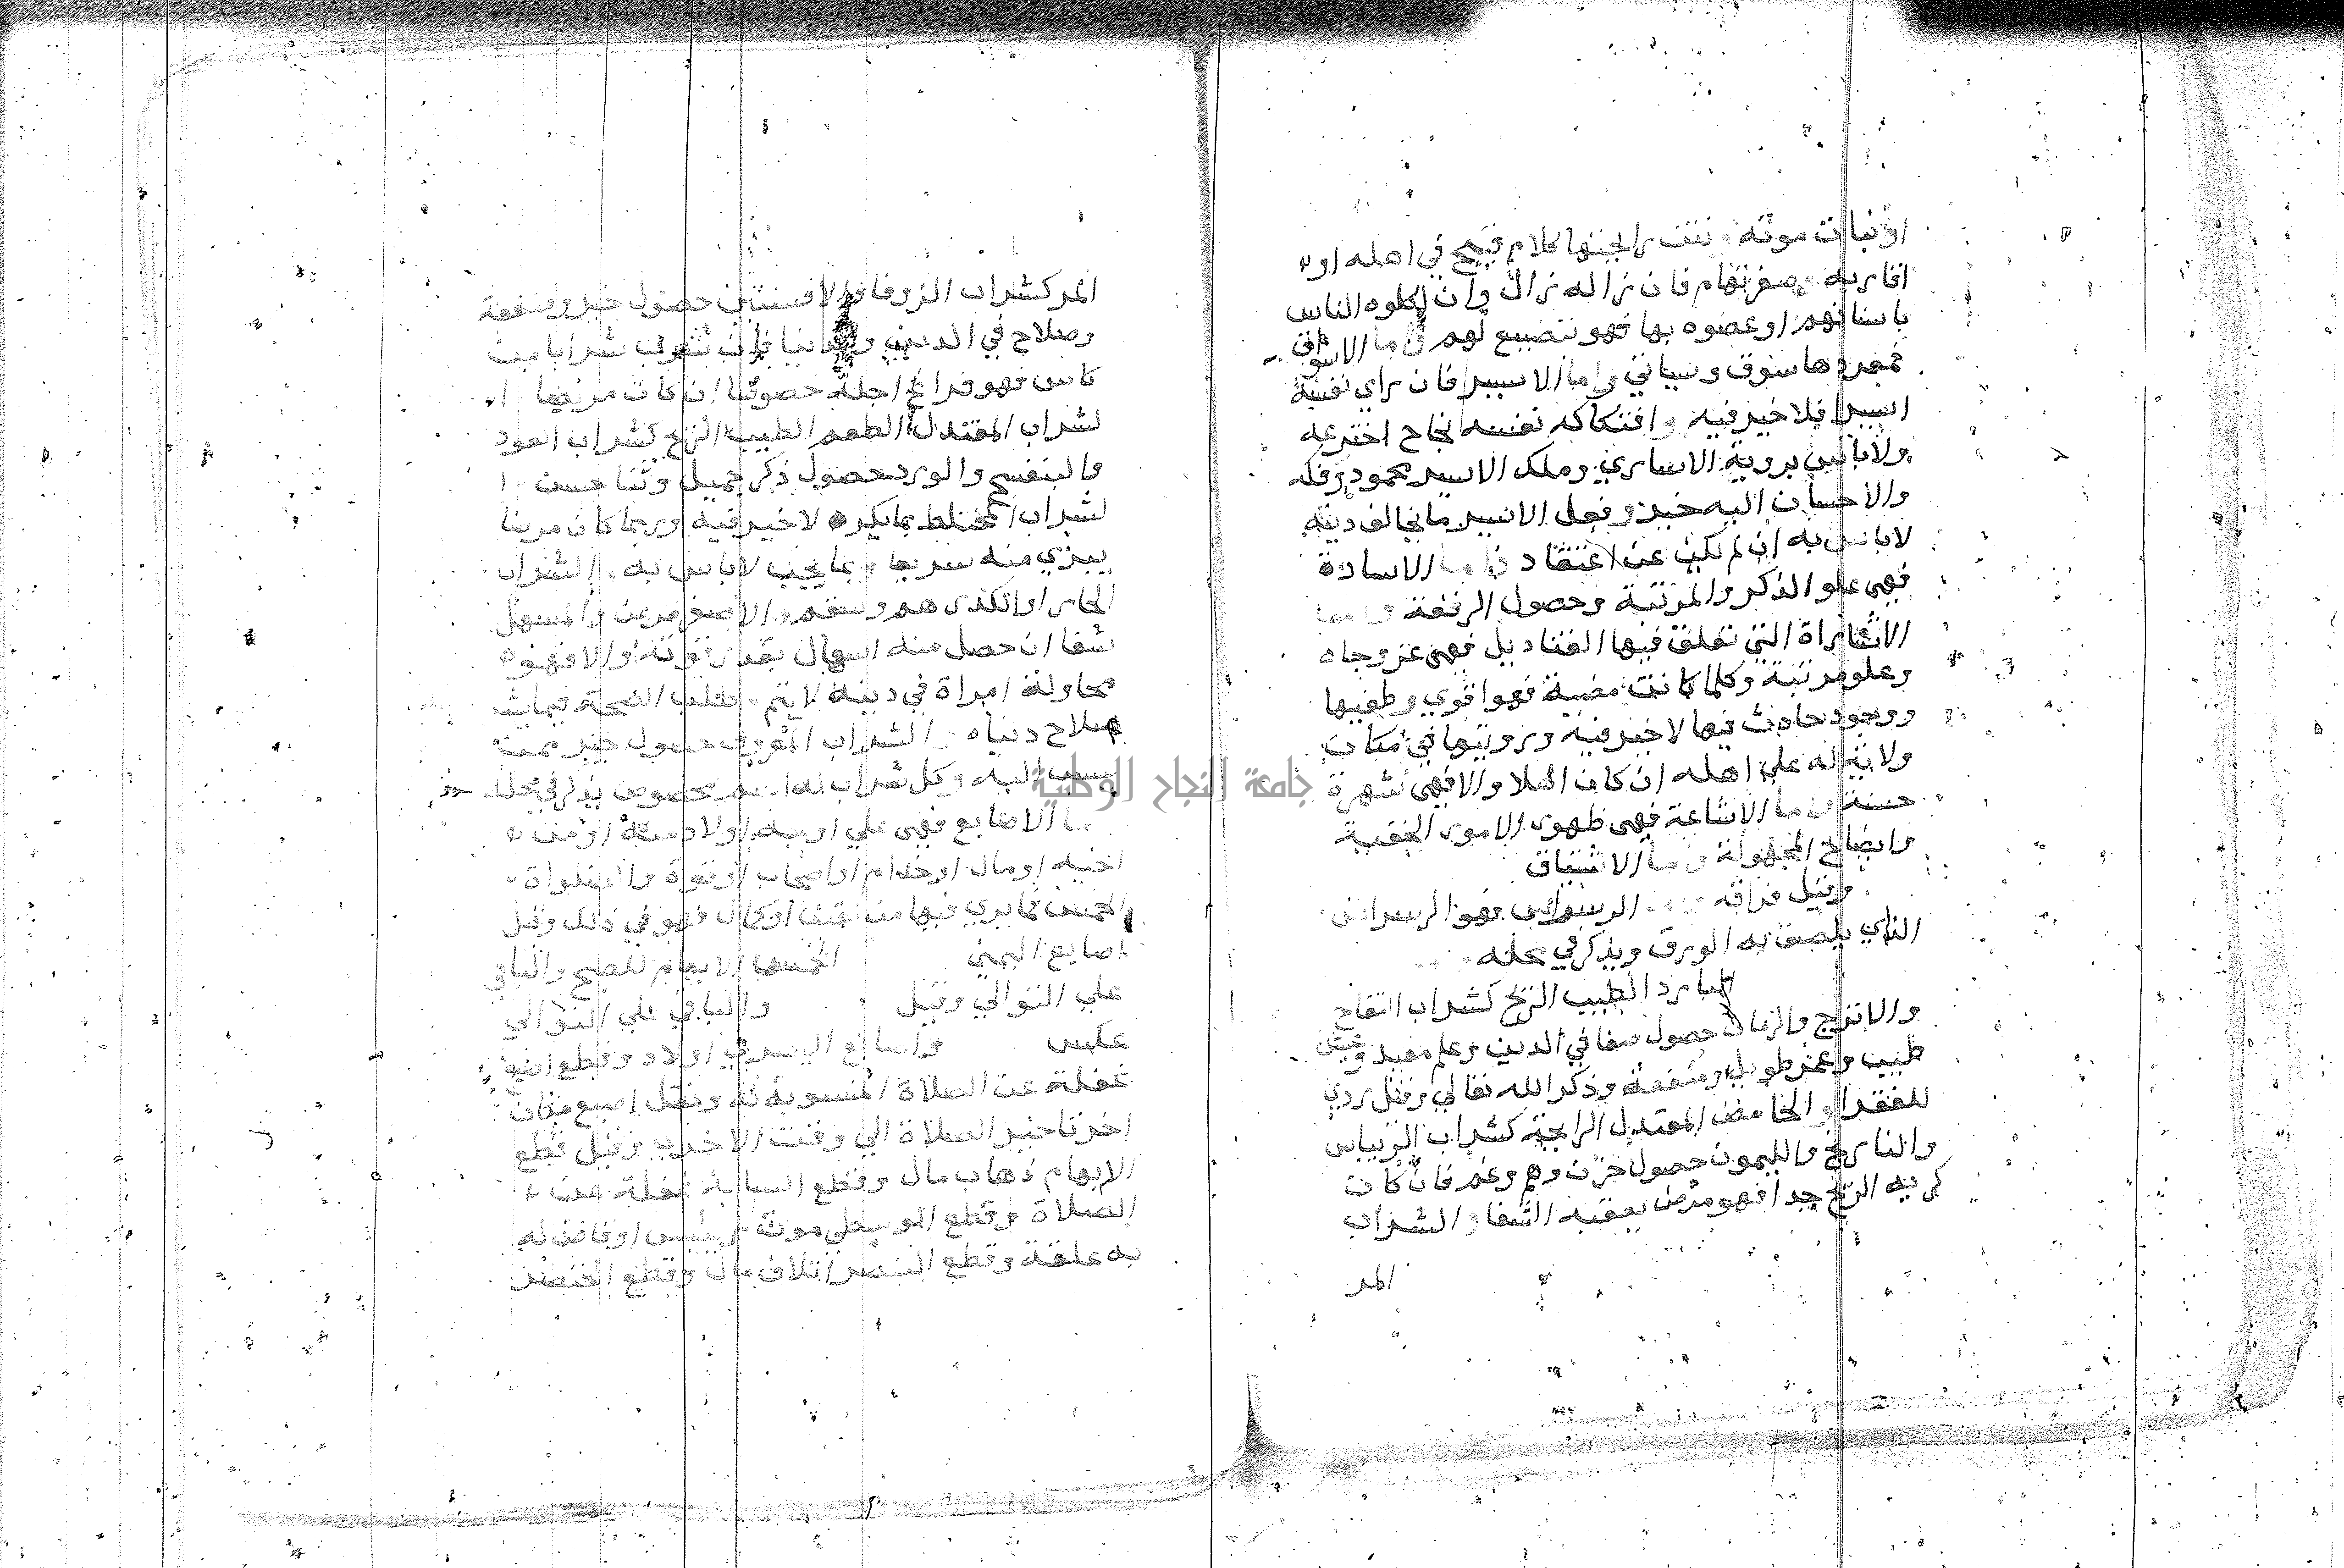 او نبات موته ونتت رائحتها كلام قبيح في اهله او
اقاربه وصفرتها هم فان زاله زال وان اكلوه الناس
باسنانهم او عضوه بها فهو تضييع لهم واما الاسواق
فمجردها سوق وسياتي واما الاسير فان راي نفسه
اسيرا فلا خير فيه وافتكاكه نفسه نجاح اخترعه
ولاباس بروية الاساري وملك الاسير محمود وفكه
والاحسان اليه خير وفعل الاسير ما يخالف دينه
لاباس به ان لم يكن عن اعتقاد واما الاسادة
فهي علو الذكر والمرتبة وحصول الرفعة واما
الاشاراة التي تعلق فيها القناديل فهي عز وجاه
وعلو مرتبة وكلما كانت مضية فهوا قوي وطفيها
ووجود حادث فيها لا خير فيه ورويتها في مكان
ولاية له علي اهله ان كان اهلا والا فهي شهرة
حسنة واما الاشاعة فهي ظهور الامور الخفية
وايضاح المجهولة واما الاشتياق
وقيل فراقه الرسراس فهو الرسراس
الذي يلصق به الورق ويذكر في محله
البارد الطيب الريح كشراب التفاح
والاترج والرمان حصول صفا في الدين وعلم مفيد وعيش
طيب وعمر طويل ومنفعة وذكر الله تعالي وقيل ردي
للفقرا والحامض المعتدل الرايحة كشراب الريباس
والنارنج والليمون حصول حزن وهم وغم فان كان
كريه الريح جدا فهو مرض يعقبه الشفا والشراب
المر
المر كشراب الزوفا والافسنتين حصول خير ومنفعة
وصلاح في الدين والدنيا فان شرابا من
كاس فهو فراغ اجله خصوصا ان كان مريضا
لشراب المعتدل الطعم الطيب الريح كشراب العود
والبنفسج والورد حصول ذكر جميل وثنا حسن
لشراب المختلط بما يكره لا خير فيه وربما كان مرضا
يبري منه سريعا وبما يحب لاباس به والشراب
الحار او الكدر هم وسقم والاصفر مرض والمسهل
شفا ان حصل منه اسهال بقدر قوته والا فهوه
محاولة امراة في دينه لا يتم وطلب الصحة فيما
صلاح دنياه والشراب المعروف حصول خير ممن
ينسب اليه وكل شراب له اسم مخصوص يذكر في محله
الاصابع فهي علي اوجه اولاد منه او من
اخيه او مال او خدام او اصحاب او قوة والصلواة
الخمس فما يري فيها من نقص او كمال فهو في ذلك وقيل
اصابع اليمني الخمسها الابهام للصبح والباقي
علي التوالي وقيل والباقي علي التوالي
عكس واصابع اليسري اولاد وقطع
غفلة عن الصلاة المنسوبة له ونقل اصبع مكان
اخر تاخير الصلاة الي وقت الاخري وقيل قطع
الابهام ذهاب مال وقطع السبابة غفلة عن
الصلاة وقطع الوسطي موت رييس او قاض له
به علقة وقطع البنصر اتلاف مال وقطع الخنصر
جامعة النجاح الوطنية